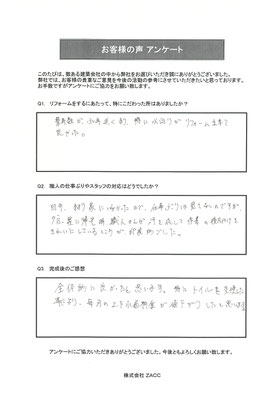 お客様の声 アンケート
このたびは、数ある建築会社の中から弊社をお選びいただき誠にありがとうございました。
弊社では、お客様の貴重なご意見を今後の活動の参考にさせていただきたいと思っております。
お手数ですがアンケートにご協力をお願い致します。
Q1. リフォームをするにあたって、特にこだわった所はありましたか？
特に水回りがリフォーム出来て
良かった。
Q2. 職人の仕事ぶりやスタッフの対応はどうでしたか？
夕方、家に帰宅時、職人さんが汗を流して作業の後片付けを
きれいにしているところが印象的でした。
Q3. 完成後のご感想
全体的に良かったと思います。特にトイレを交換した
事により、毎月の上下水道料金が値下がりしたと思います
アンケートにご協力いただきありがとうございました。今後ともよろしくお願い致します。
株式会社 ZACC